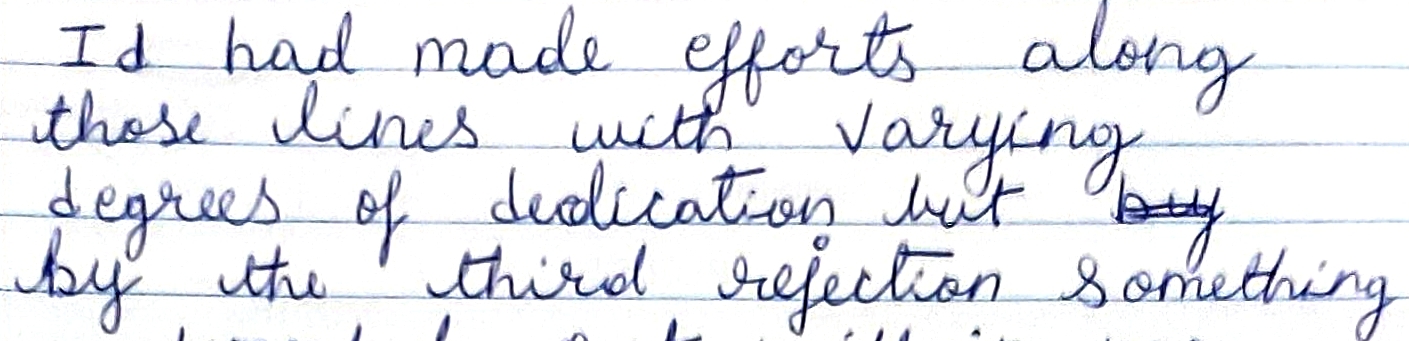 Id had made efforts along
those lines with varying
degrees of dedication but
by the third rejection something